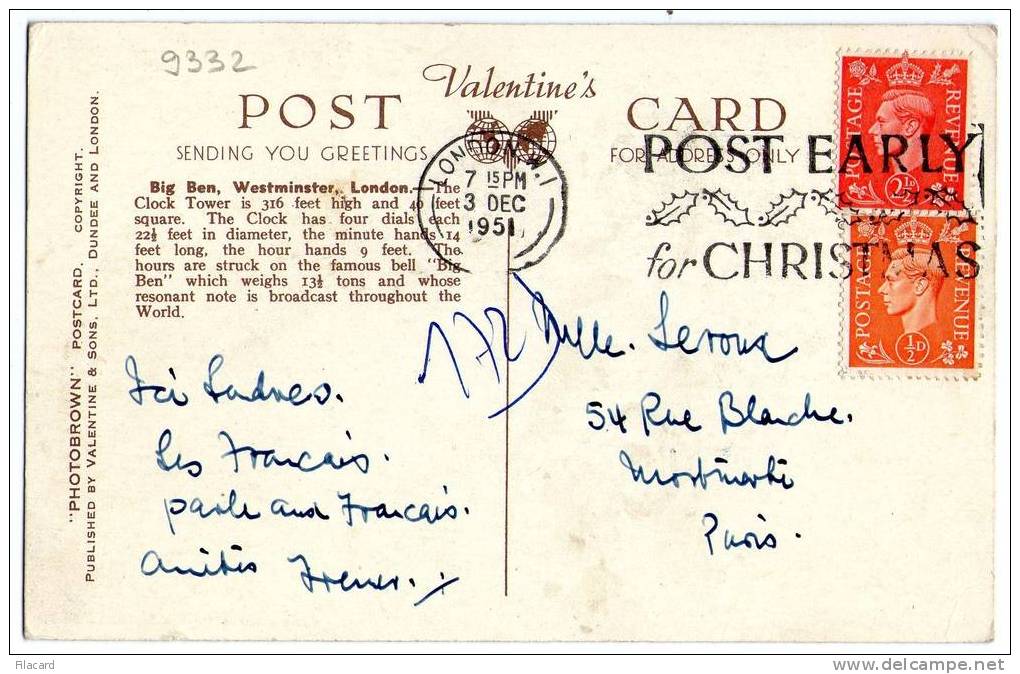 9332
Valentine's
POST CARD
SENDING YOU GREETINGS
FOR ADDRESS ONLY
LONDON
7 15 PM
3 DEC
1951
POST EARLY
for CHRISTMAS
POSTAGE REVENUE
2½D
POSTAGE REVENUE
½D
Big Ben, Westminster, London. The
Clock Tower is 316 feet high and 40 feet
square. The Clock has four dials each
22½ feet in diameter, the minute hands 14
feet long, the hour hands 9 feet. The
hours are struck on the famous bell "Big
Ben" which weighs 13½ tons and whose
resonant note is broadcast throughout the
World.
"PHOTOBROWN" POSTCARD. COPYRIGHT.
PUBLISHED BY VALENTINE & SONS, LTD., DUNDEE AND LONDON.
172
Ici Londres.
Les Francais.
parle aux Francais.
Melle. Leroux
54 Rue Blanche.
Paris.
filacard
www.delcampe.net